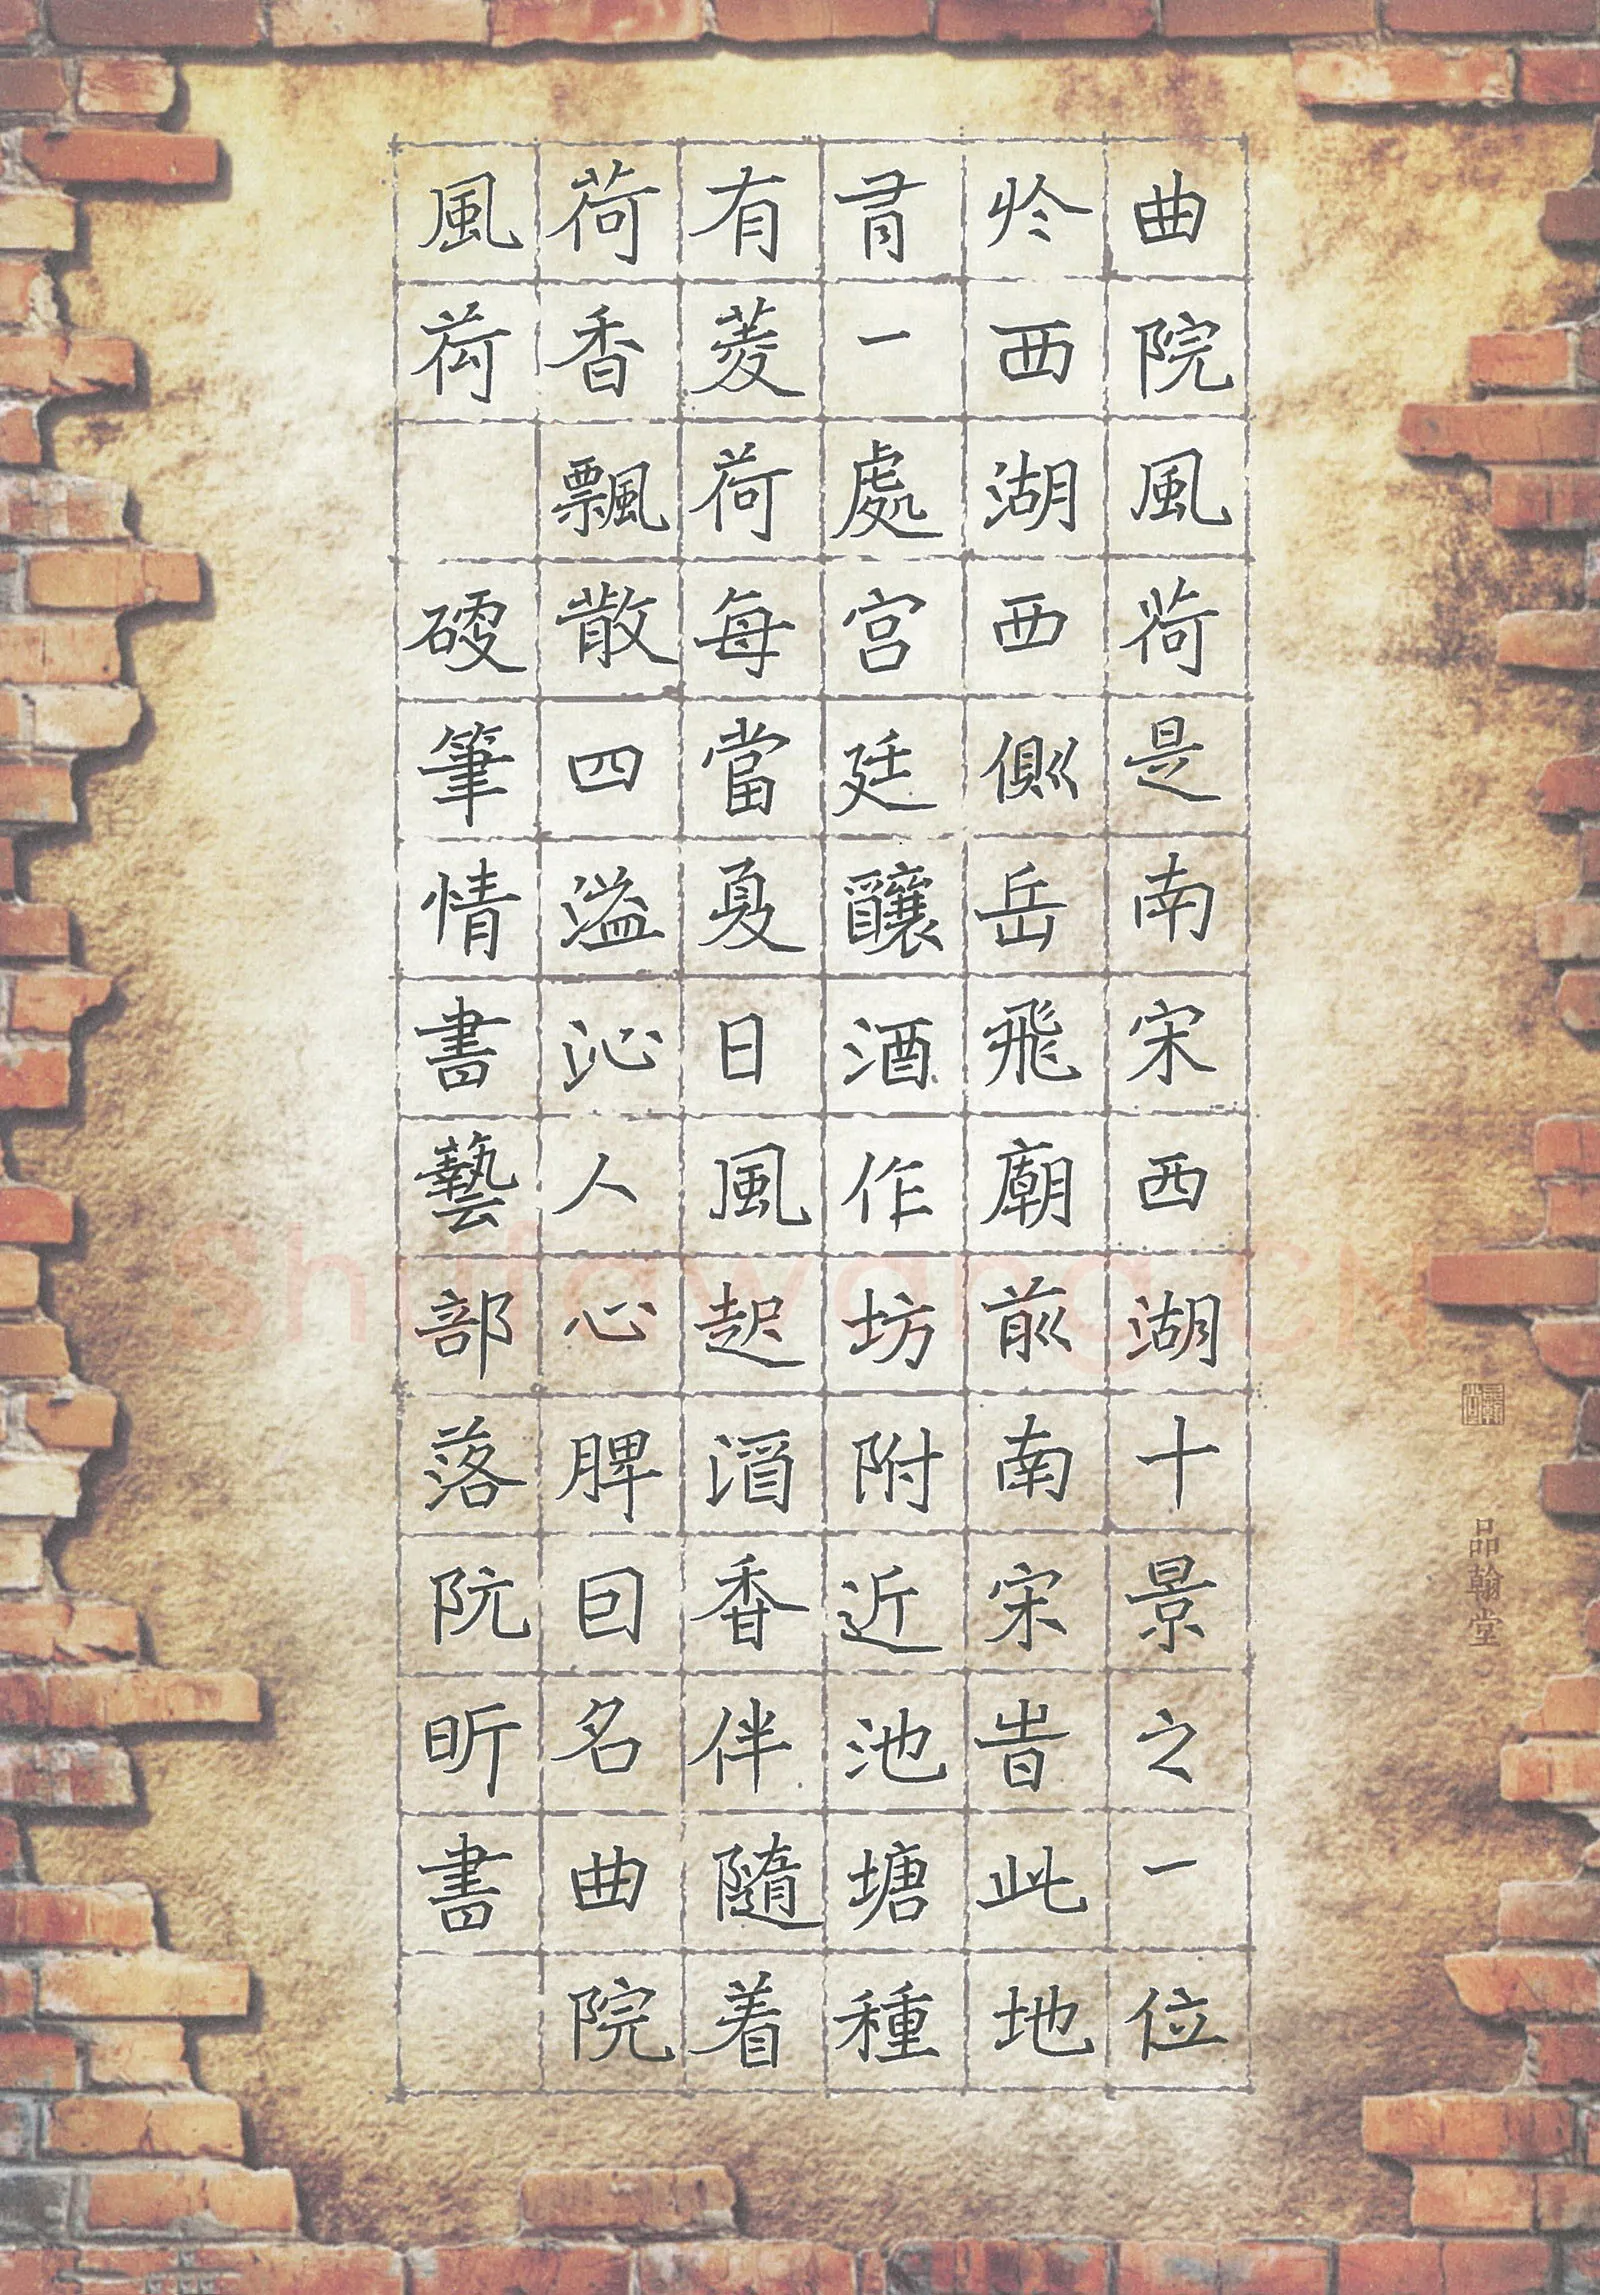 曲院風荷是南宋西湖十景之一位
於西湖西側岳飛廟前南宋昔此地
有一處宫廷釀酒作坊附近池塘種
有菱荷每當夏日風起酒香伴隨着
荷香飄散四溢沁人心脾因名曲院
風荷 硬筆情書藝部落阮昕書
品翰堂
Shufawang.CN